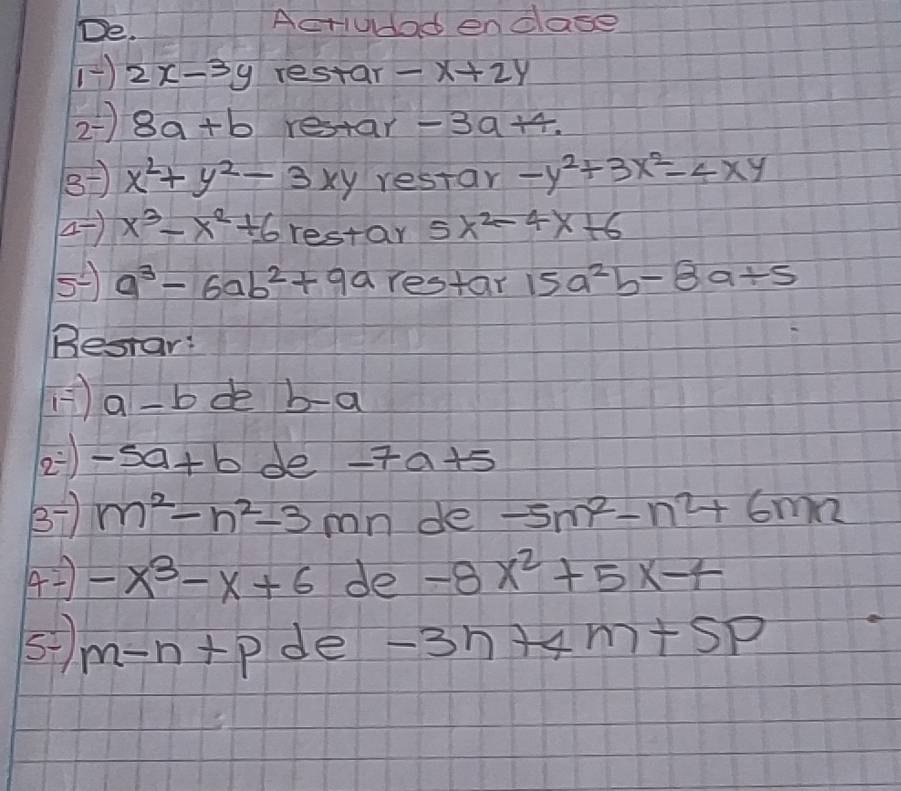 De. Actividad en clase
1-) 2x-3y restar -x+2y
2-) 8a+b restar -3a+4.
3-) x²+y²-3xy restar -y²+3x²-4xy
4-) x³-x²+6 restar 5x²-4x+6
5-) a³-6ab²+9a restar 15a²b-8a+5
Restar:
1-) a-b de b-a
2-) -5a+b de -7a+5
3-) m²-n²-3mn de -5m²-n²+6mn
4-) -x³-x+6 de -8x²+5x-4
5-) m-n+p de -3n+4m+5p